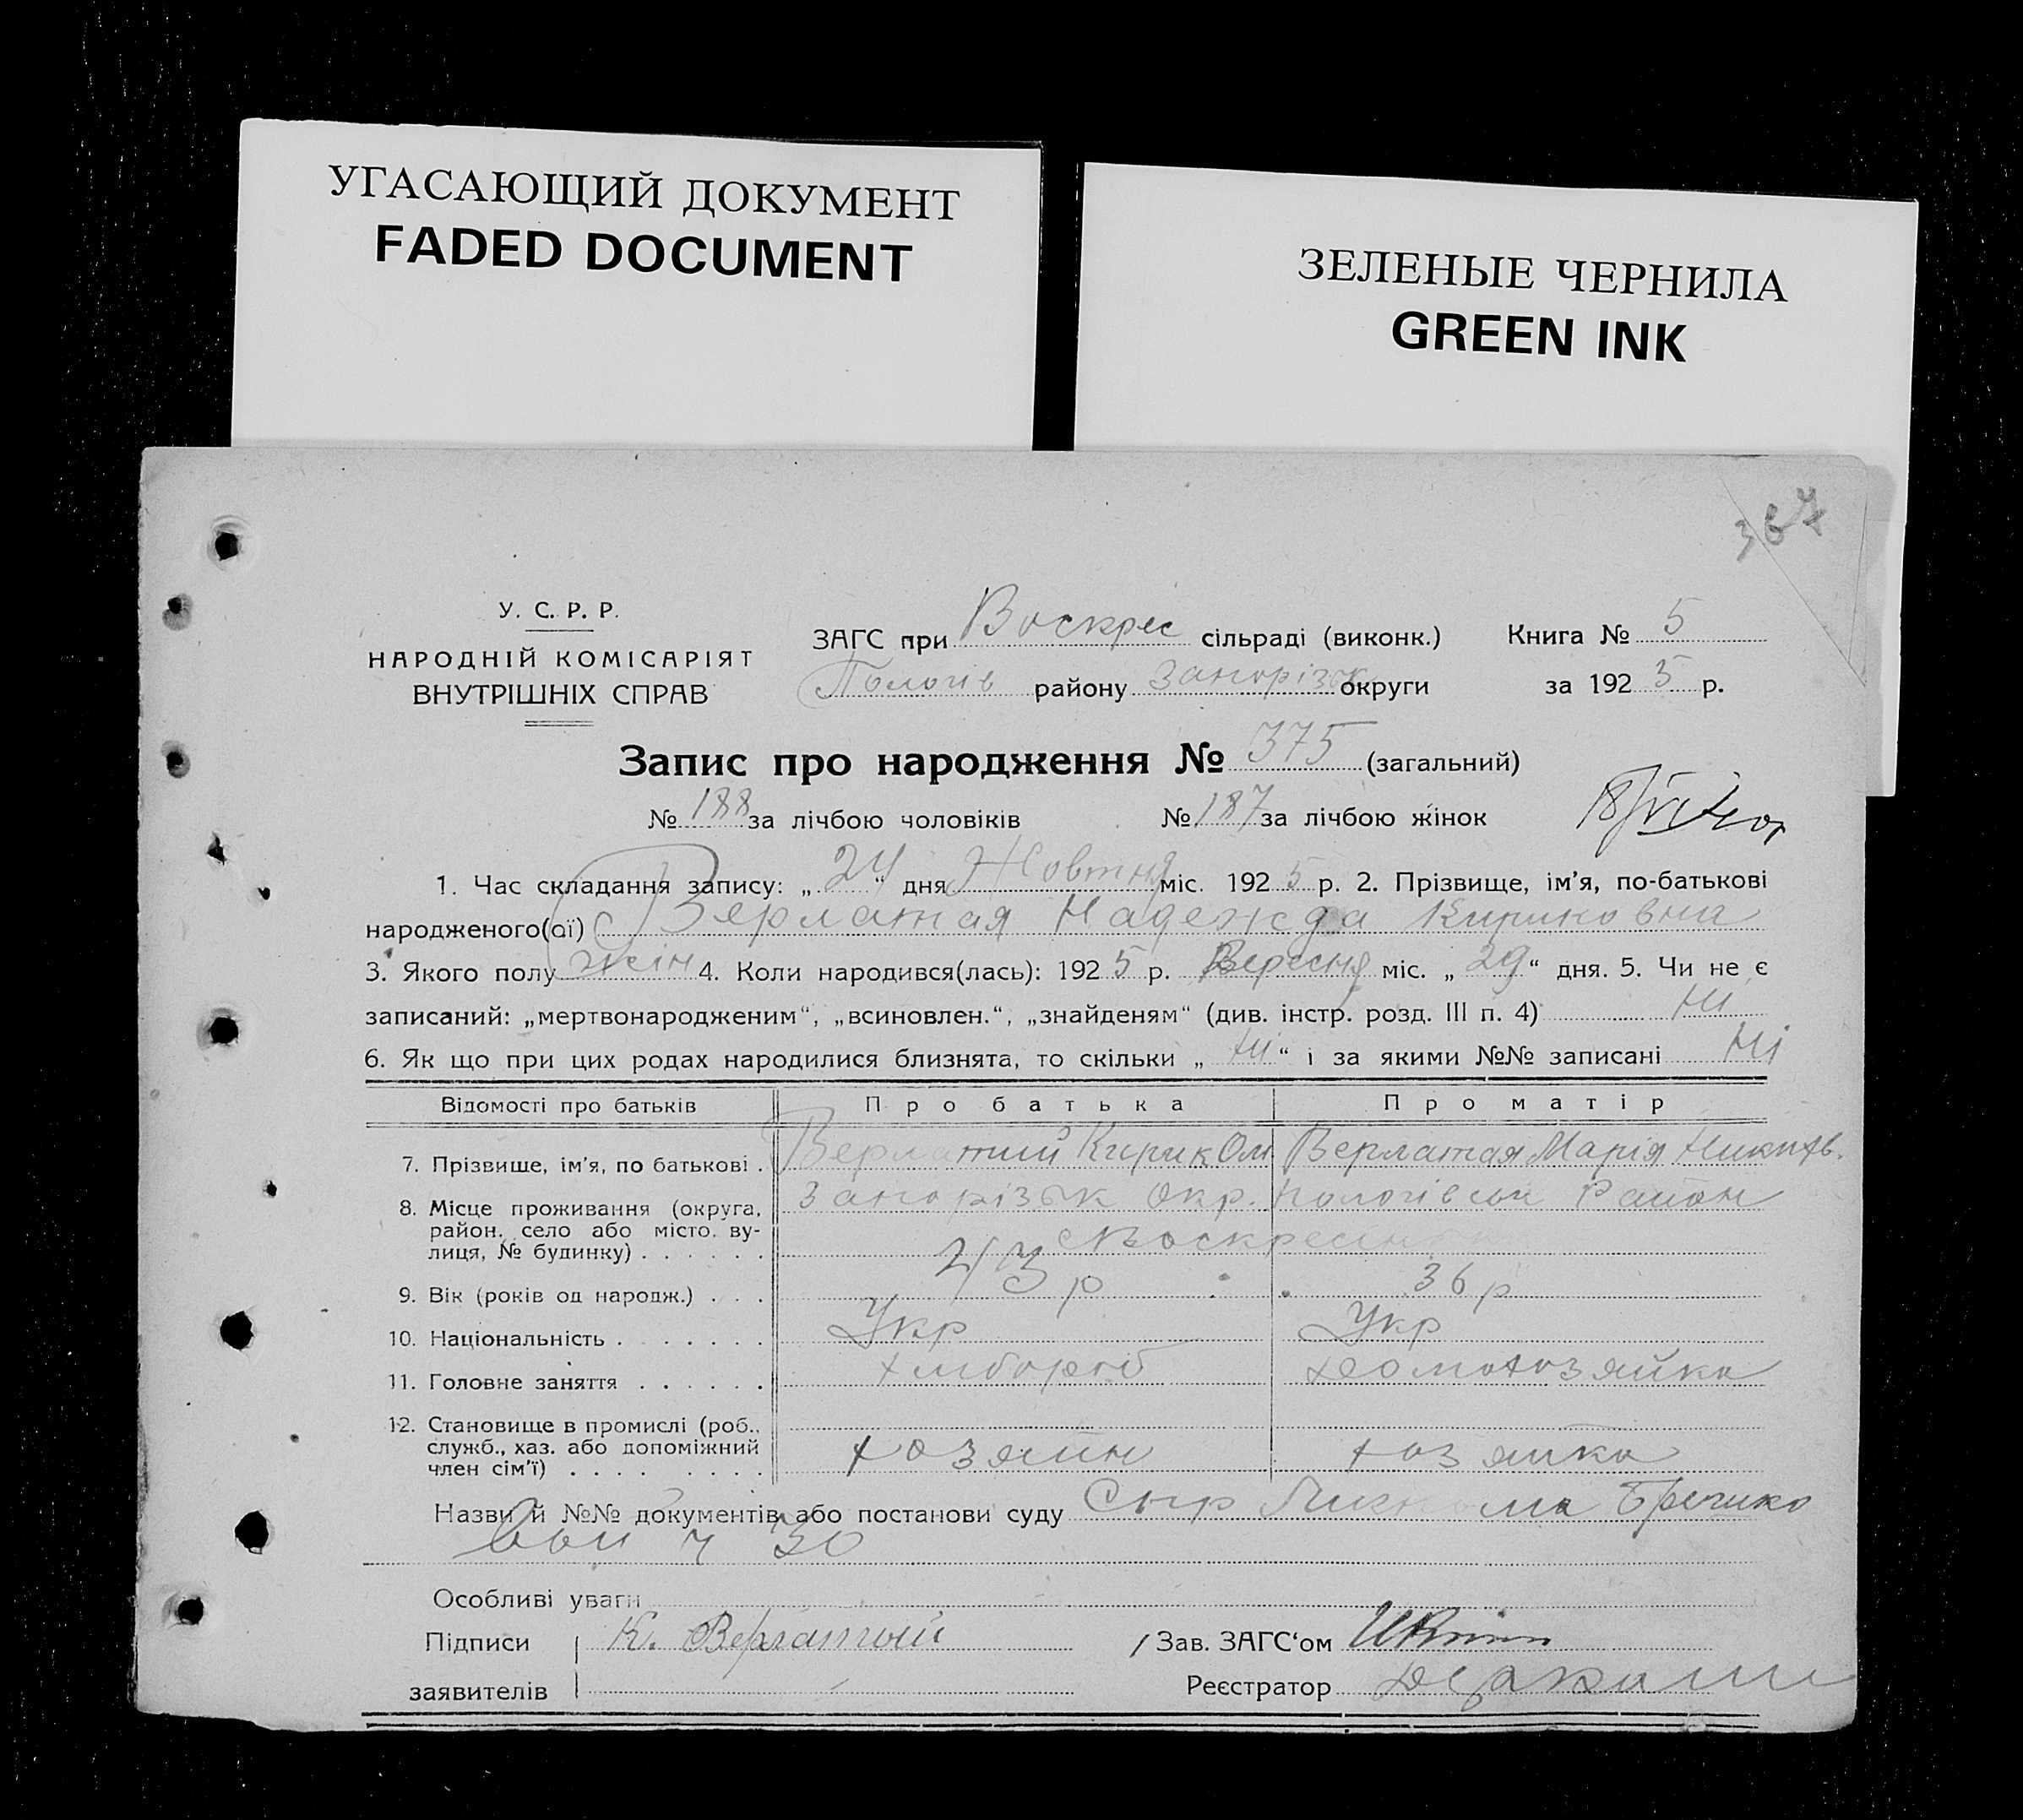 УГАСАЮЩИЙ ДОКУМЕНТ
FADED DOCUMENT
ЗЕЛЕНЫЕ ЧЕРНИЛА
GREEN INK
367
У. С. Р. Р.
НАРОДНІЙ КОМІСАРІЯТ
ВНУТРІШНІХ СПРАВ
ЗАГС при Воскрес сільраді (виконк.) Книга № 5
Пологів району Запорізьк округи за 1925 р.
Запис про народження № 375 (загальний)
№ 188 за лічбою чоловіків № 187 за лічбою жінок
1. Час складання запису: „24“ дня Жовтня міс. 1925 р. 2. Прізвище, ім'я, по-батькові
народженого(ої) Верлатая Надежда Кириковна
3. Якого полу жін 4. Коли народився(лась): 1925 р. Вересня міс. „29“ дня. 5. Чи не є
записаний: „мертвонародженим“, „всиновлен.“, „знайденям“ (див. інстр. розд. III п. 4) Ні
6. Як що при цих родах народилися близнята, то скільки „Ні“ і за якими №№ записані Ні
Відомості про батьків Про батька Про матір
7. Прізвище, ім'я, по батькові . Верлатий Кирик Ом Верлатая Марія Никитв.
8. Місце проживання (округа, Запорізьк Окр. Пологівськ Район
район, село або місто, ву-
лиця, № будинку) . . . . . .
9. Вік (років од народж.) . . . 43 р 36 р
10. Національність . . . . . . . Укр Укр
11. Головне заняття . . . . . . хлібороб домохозяйка
12. Становище в промислі (роб.,
служб., хаз. або допоміжний хозяин хозяйка
член сім'ї) . . . . . . . .
Назви й №№ документів або постанови суду
30
Особливі уваги
Підписи К. Верлатый Зав. ЗАГС‘ом
заявителів Реєстратор